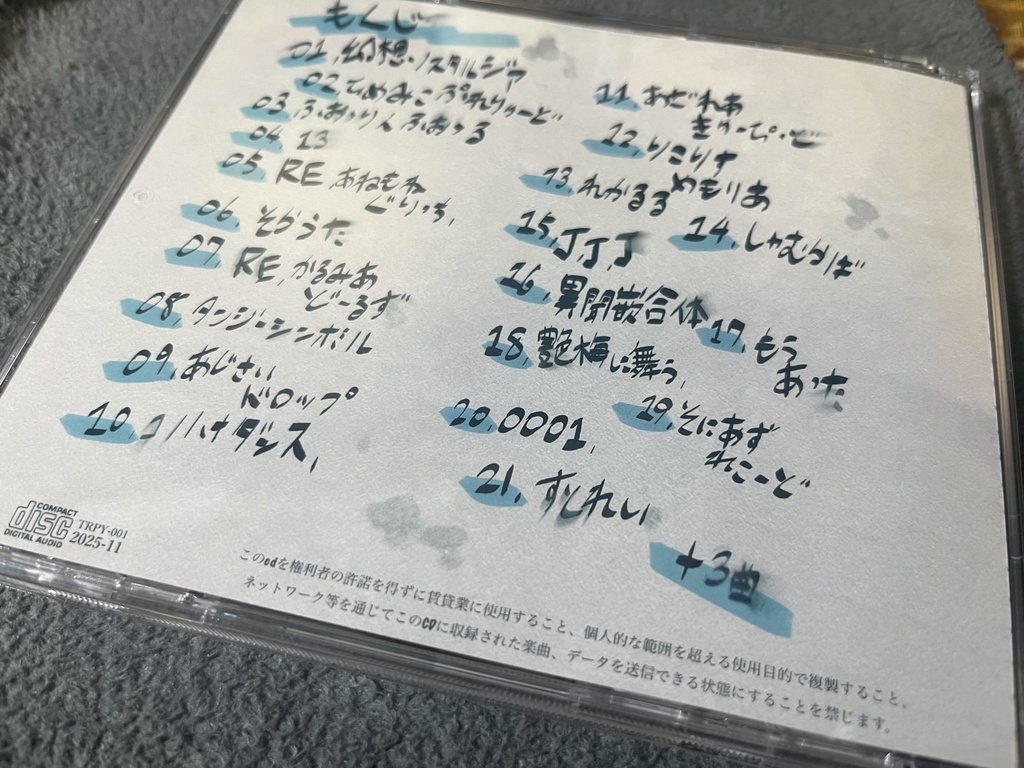 もくじ
01, 幻想ノスタルジア
02, でめみこぷれりゅーど
03, ふぉーりんふぉーる
04, 13
05, RE, あねもね
どりっち,
06, そらうた
07, RE, かるみあ
どーるず
08, タンジーシンボル
09, あじさい
ドロップ
10, コノハナダンス,
11, あどれあ
きゅーぴっど
12, りこりす
13, れかるる めもりあ
14, しゃむらば
15, JJJ
16, 異閉嵌合体
17, もう
あった
18, 艶梅に舞う,
19, そにあず
れこーど
20, 0001,
21, すとれい
+3曲
COMPACT
disc
DIGITAL AUDIO
TRPY-001
2025-11
このcdを権利者の許諾を得ずに賃貸業に使用すること、個人的な範囲を超える使用目的で複製すること、
ネットワーク等を通じてこのCDに収録された楽曲、データを送信できる状態にすることを禁じます。